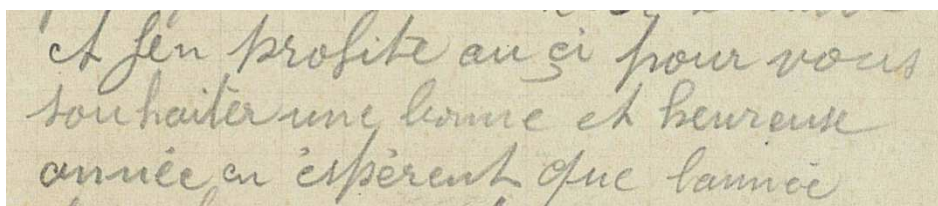 et jen profite au çi pour vous
souhaiter une bonne et heureuse
année en éspèrent que lannèe